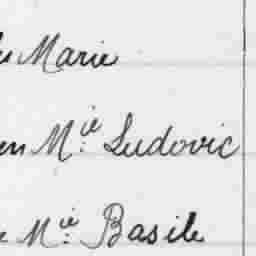 Marie
en Mie Ludovic
Mie Basile